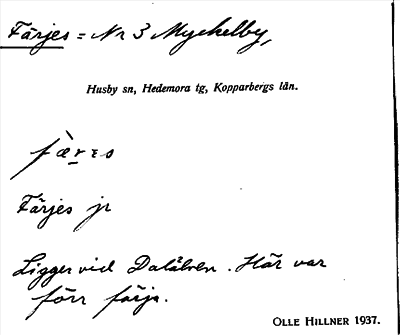 Färjes = Nr 3 Myckelby,
Husby sn, Hedemora tg, Kopparbergs län.
fæ̀rɛs
Färjes jr
Ligger vid Dalälven. Här var
förr färja.
OLLE HILLNER 1937.